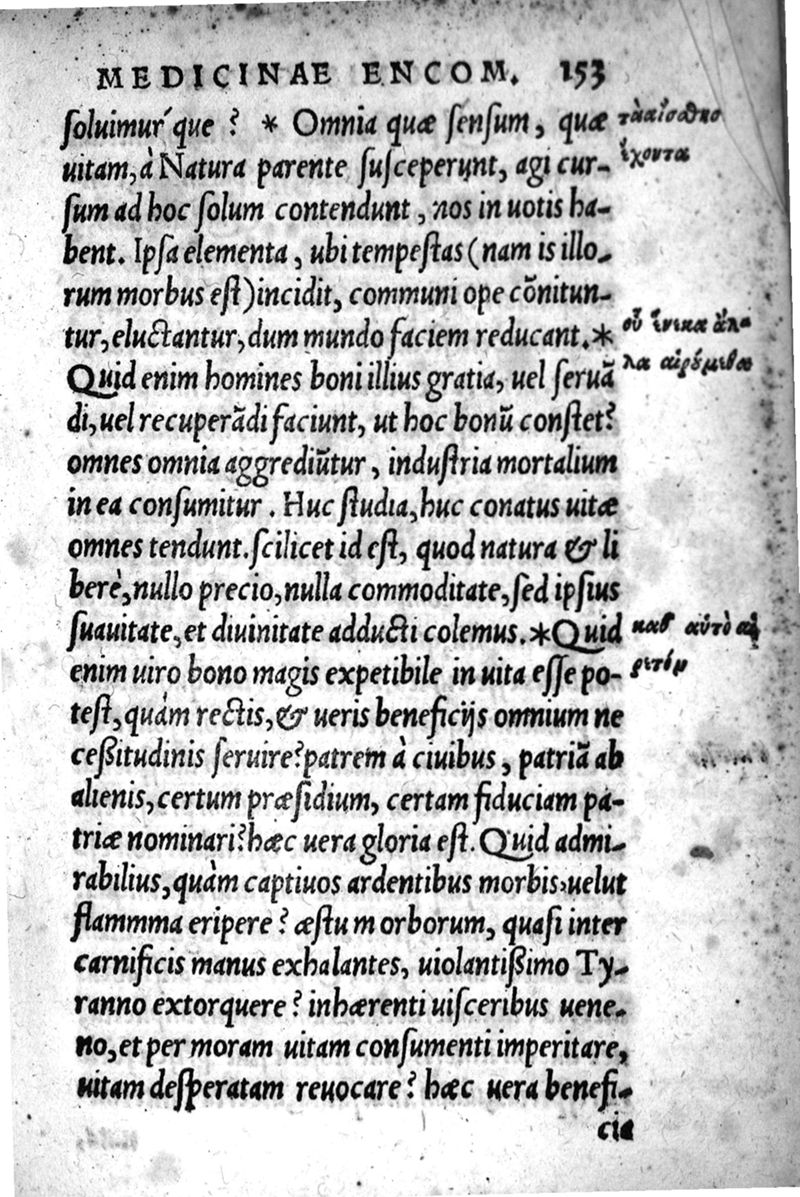 MEDICINAE ENCOM. 153
soluimur´que ? * Omnia quæ sensum, quæ
uitam, à Natura parente susceperunt, agi cur-
sum ad hoc solum contendunt, nos in uotis ha-
bent. Ipsa elementa, ubi tempestas (nam is illo-
rum morbus est) incidit, communi ope cõnitun-
tur, eluctantur, dum mundo faciem reducant.*
Quid enim homines boni illius gratia, uel seruã
di, uel recuperãdi faciunt, ut hoc bonũ constet?
omnes omnia aggrediũtur, industria mortalium
in ea consumitur. Huc studia, huc conatus uitæ
omnes tendunt. scilicet id est, quod natura & li
berè, nullo precio, nulla commoditate, sed ipsius
suauitate, et diuinitate adducti colemus.*Quid
enim uiro bono magis expetibile in uita esse po-
test, quàm rectis, & ueris beneficijs omnium ne
ceßitudinis seruire? patrem à ciuibus, patriã ab
alienis, certum præsidium, certam fiduciam pa-
triæ nominari? hæc uera gloria est. Quid admi-
rabilius, quàm captiuos ardentibus morbis, uelut
flammma eripere? æstu morborum, quasi inter
carnificis manus exhalantes, uiolantißimo Ty-
ranno extorquere? inhærenti uisceribus uene-
no, et per moram uitam consumenti imperitare,
uitam desperatam reuocare? hæc uera benefi-
cia
ἔχοντα
οὗ ἕνεκα ἄλ
λα αἱρούμεθα
καθ αὑτὸ αἱ
ρετόν